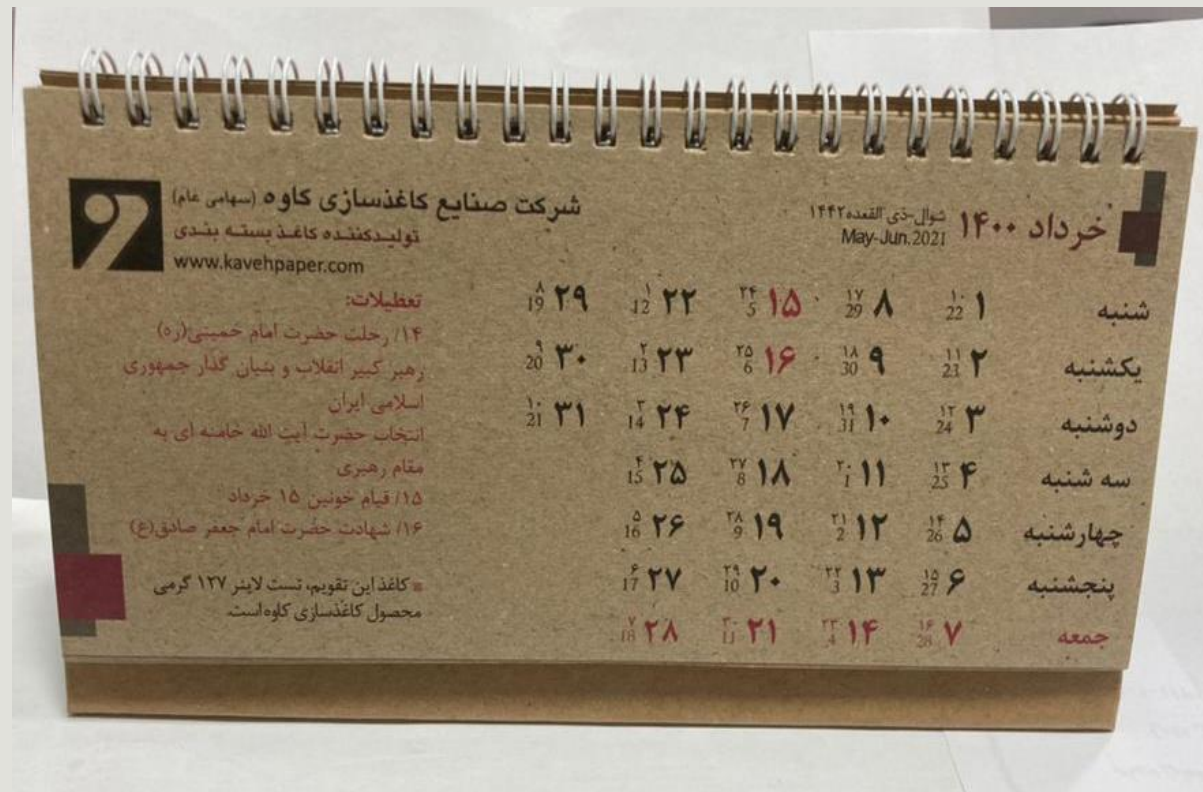 خرداد ۱۴۰۰
شوال-ذی القعده ۱۴۴۲
May-Jun.2021
شرکت صنایع کاغذسازی کاوه (سهامی عام)
تولیدکننده کاغذ بسته بندی
www.kavehpaper.com
شنبه ۱ ۱۰ 22 ۸ ۱۷ 29 ۱۵ ۲۴ 5 ۲۲ ۱ 12 ۲۹ ۸ 19
یکشنبه ۲ ۱۱ 23 ۹ ۱۸ 30 ۱۶ ۲۵ 6 ۲۳ ۲ 13 ۳۰ ۹ 20
دوشنبه ۳ ۱۲ 24 ۱۰ ۱۹ 31 ۱۷ ۲۶ 7 ۲۴ ۳ 14 ۳۱ ۱۰ 21
سه شنبه ۴ ۱۳ 25 ۱۱ ۲۰ 1 ۱۸ ۲۷ 8 ۲۵ ۴ 15
چهارشنبه ۵ ۱۴ 26 ۱۲ ۲۱ 2 ۱۹ ۲۸ 9 ۲۶ ۵ 16
پنجشنبه ۶ ۱۵ 27 ۱۳ ۲۲ 3 ۲۰ ۲۹ 10 ۲۷ ۶ 17
جمعه ۷ ۱۶ 28 ۱۴ ۲۳ 4 ۲۱ ۳۰ 11 ۲۸ ۷ 18
تعطیلات:
۱۴/ رحلت حضرت امام خمینی(ره)
رهبر کبیر انقلاب و بنیان گذار جمهوری
اسلامی ایران
انتخاب حضرت آیت الله خامنه ای به
مقام رهبری
۱۵/ قیام خونین ۱۵ خرداد
۱۶/ شهادت حضرت امام جعفر صادق(ع)
کاغذ این تقویم، تست لاینر ۱۲۷ گرمی
محصول کاغذسازی کاوه است.